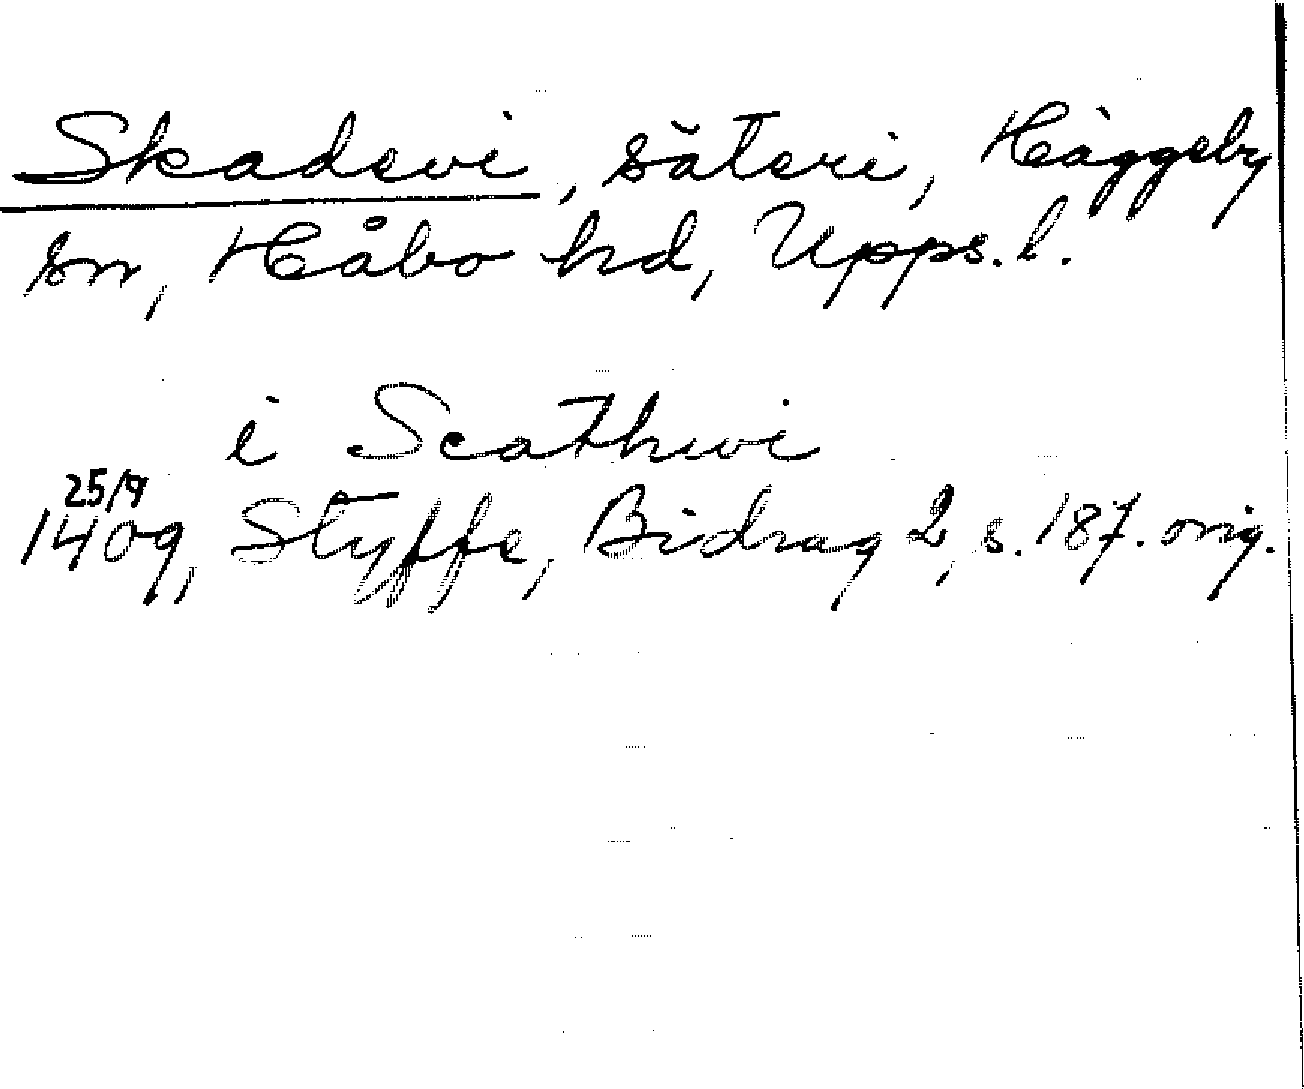 Skadevi, säteri, Häggeby
sn, Håbo hd, Upps. l.
i Scathwi
25/9
1409, Styffe, Bidrag 2, s. 187. orig.